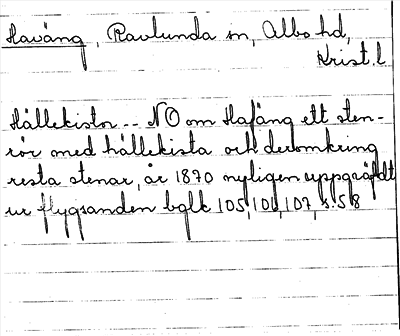 Haväng, Ravlunda sn, Albo hd,
Krist. l
Hällekistor -- NO om Hafäng ett sten-
rör med hällekista och deromkring
resta stenar, år 1870 nyligen uppgräfdt
ur flygsanden bglk 105, 101, 107, s. 58